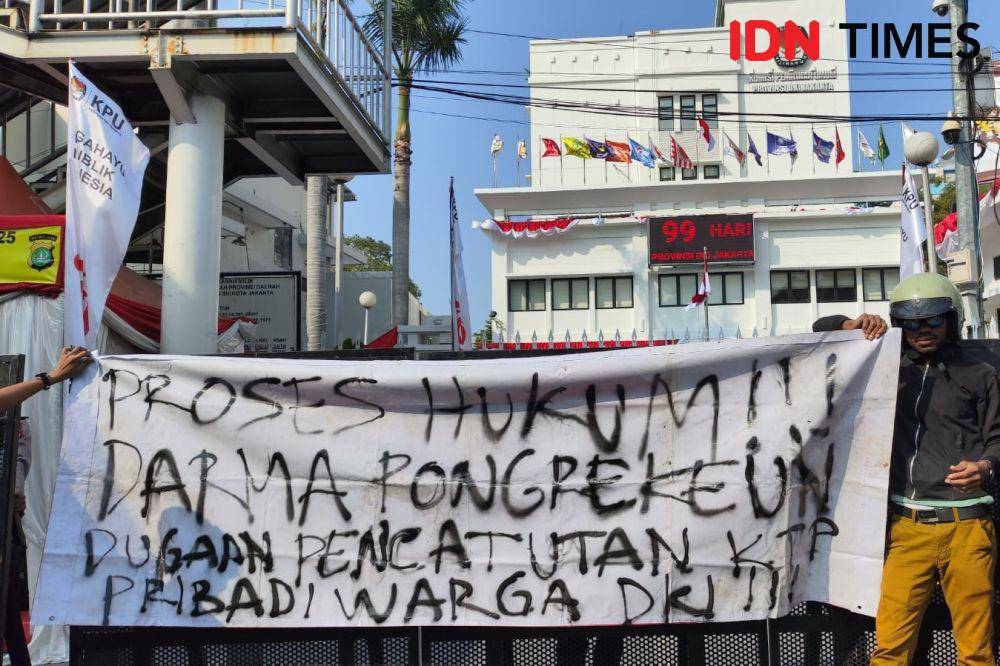 IDN TIMES
KPU
GAHAYU
UBLIK
NESIA
25
KOMISI PEMILIHAN UMUM
PROVINSI DKI JAKARTA
99 HARI
PROVINSI DKI JAKARTA
KPU
PROSES HUKUM!!!
DARMA PONGREKEUN
DUGAAN PENCATUTAN KTP
PRIBADI WARGA DKI!!!